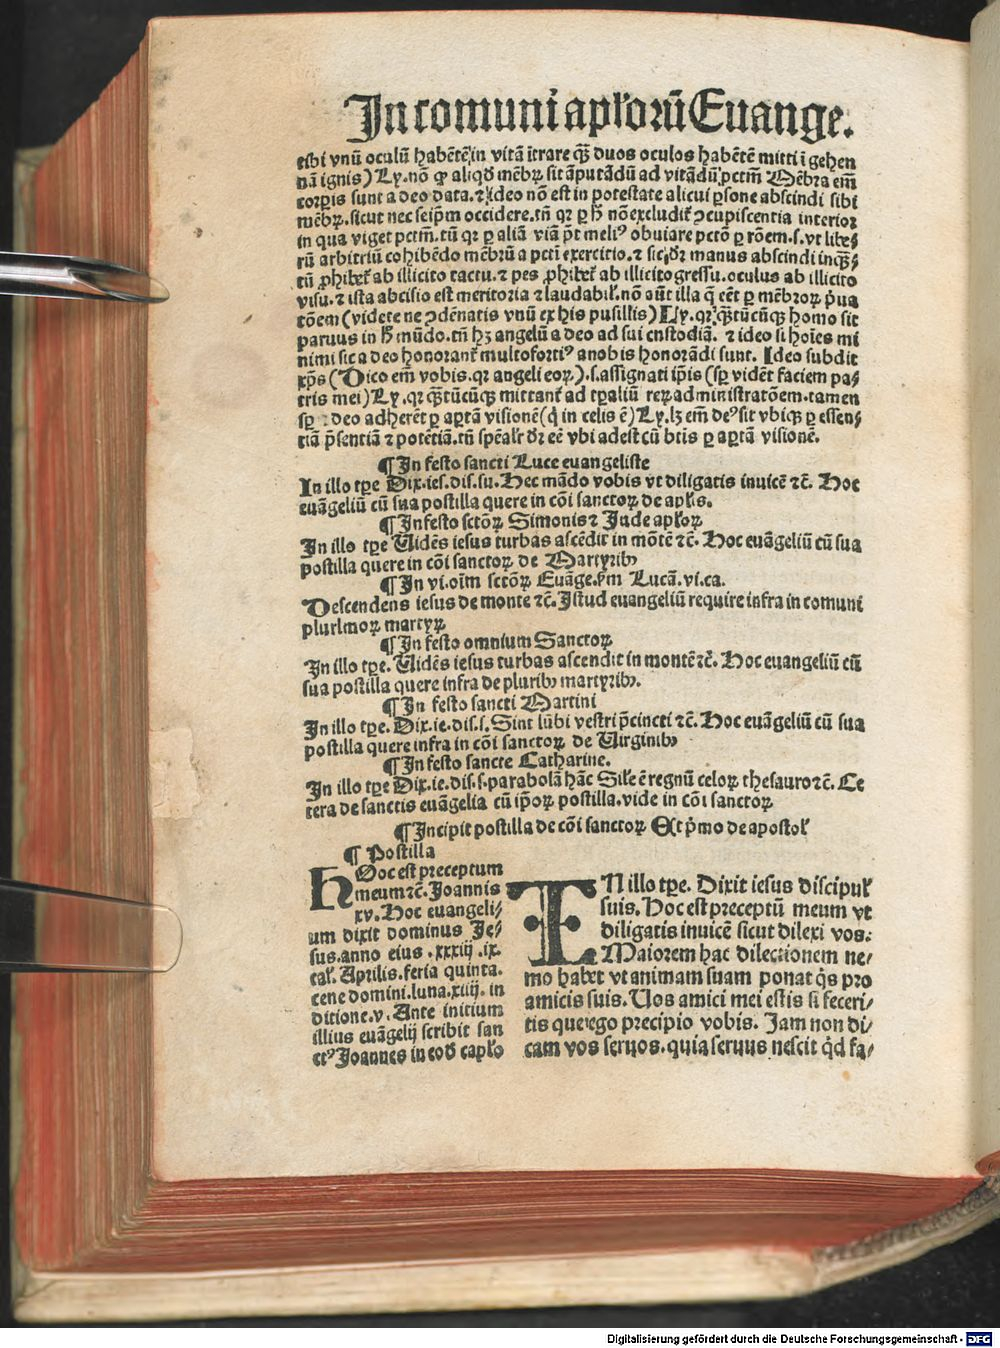 In comuni apl'orū Euange.
tibi vnū oculū habētē in vitā ītrare qȝ duos oculos habētē mitti ī gehen
nā ignis) Ly. nō ꝙ aliqd̄ mēbꝝ sit āputādū ad vitādū pctm̄ Mēbra em̄
corpis sunt a deo data. ⁊ ideo nō est in potestate alicui ꝑsone abscindi sibi
mēbꝝ. sicut nec seip̄m occidere. tn̄ qꝛ ꝑ h̄ nō excludit᷑ ꝯcupiscentia interior
in qua viget pctm̄. tū qꝛ ꝑ aliā viā p̄t meliꝰ obuiare pctō ꝑ rōem. s. vt libe⸗
rū arbitriū cohibēdo mēbrū a pcti exercitio. ⁊ sic dr̄ manus abscindi inqȝ⸗
tū ꝓhibet᷑ ab illicito tactu. ⁊ pes ꝓhibet᷑ ab illicito gressu. oculus ab illicito
visu. ⁊ ista abcisio est meritoria ⁊ laudabil'. nō aūt illa q̄ eēt ꝑ mēbroꝝ p̄ua
tōem (videte ne ꝯdēnatis vnū ex his pusillis) Ly. qꝛ qȝtūcūqȝ homo sit
paruus in h̄ mūdo. tn̄ hȝ angelū a deo ad sui custodiā. ⁊ ideo si hoīes mi
nimi sic a deo honorant᷑ multofortiꝰ a nobis honorādi sunt. Ideo subdit
xp̄s (Dico em̄ vobis. qꝛ angeli eoꝝ.) s. assignati ip̄is (sꝑ vidēt faciem pa⸗
tris mei) Ly. qꝛ qȝtūcūqȝ mittant᷑ ad tꝑaliū reꝝ administratōem. tamen
sꝑ deo adherēt ꝑ aꝑtā visionē (q̇ in celis ē) Ly. lȝ em̄ deꝰ sit vbiqȝ ꝑ essen⸗
tiā p̄sentiā ⁊ potētiā. tn̄ spēalr̄ dr̄ eē vbi adest cū btis ꝑ aꝑtā visionē.
¶ In festo sancti Luce euangeliste
In illo tꝑe Dix. ies. dis. su. Hec mādo vobis vt diligatis inuicē ⁊c̄. Hoc
euāgeliū cū sua postilla quere in cōi sanctoꝝ de apl'is.
¶ In festo sctōꝝ Simonis ⁊ Jude apl'oꝝ
In illo tꝑe Uidēs iesus turbas ascēdit in mōtē ⁊c̄. Hoc euāgeliū cū sua
postilla quere in cōi sanctoꝝ de Martyribꝫ
¶ In vi. oīm sctōꝝ Euāge. sm̄ Lucā. vi. ca.
Descendens iesus de monte ⁊c̄. Istud euangeliū require infra in comuni
plurimoꝝ martyꝝ
¶ In festo omnium Sanctoꝝ
In illo tꝑe. Uidēs iesus turbas ascendit in montē ⁊c̄. Hoc euangeliū cū
sua postilla quere infra de pluribꝫ martyribꝫ.
¶ In festo sancti Martini
In illo tꝑe. Dix. ie. dis. s. Sint lūbi vestri p̄cincti ⁊c̄. Hoc euāgeliū cū sua
postilla quere infra in cōi sanctoꝝ de Uirginibꝫ
¶ In festo sancte Catharine.
In illo tꝑe Dix. ie. dis. s. parabolā hāc Sil'e ē regnū celoꝝ thesauro ⁊c̄. Ce
tera de sanctis euāgelia cū ip̄oꝝ postilla. vide in cōi sanctoꝝ
¶ Incipit postilla de cōi sanctoꝝ Et p̄mo de apostol'
¶ Postilla
HOc est preceptum
meum ⁊c̄. Joannis
xv. Hoc euangeli⸗
um dixit dominus Je⸗
sus. anno eius .xxxiij. ix.
cal'. Aprilis. feria quinta.
cene domini. luna. xiiij. in
ditione. v. Ante initium
illius euāgelij scribit san
ctꝰ Joannes in eod̄ capl'o
IN illo tꝑe. Dixit iesus discipul'
suis. Hoc est preceptū meum vt
diligatis inuicē sicut dilexi vos.
Maiorem hac dilectionem ne⸗
mo habet vt animam suam ponat q̇s pro
amicis suis. Uos amici mei estis si feceri⸗
tis que ego precipio vobis. Jam non di⸗
cam vos seruos. quia seruus nescit qd̄ fa⸗
Digitalisierung gefördert durch die Deutsche Forschungsgemeinschaft - DFG